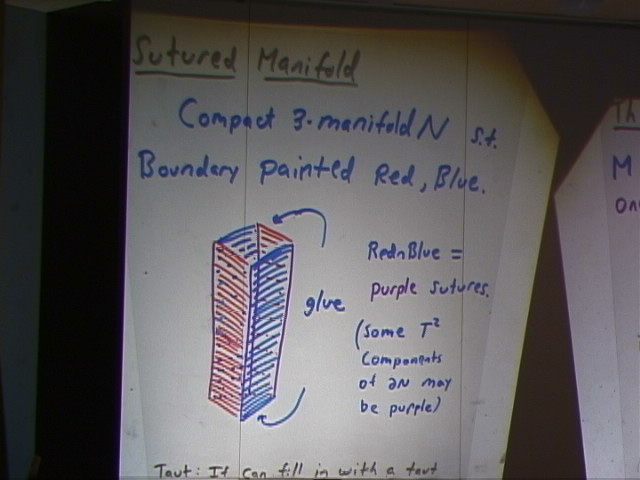 Sutured Manifold
Compact 3-manifold N s.t.
Boundary painted Red, Blue.
Red∩Blue =
purple sutures.
glue
(some T²
components
of ∂N may
be purple)
Taut: It can fill in with a taut
Th
M
on